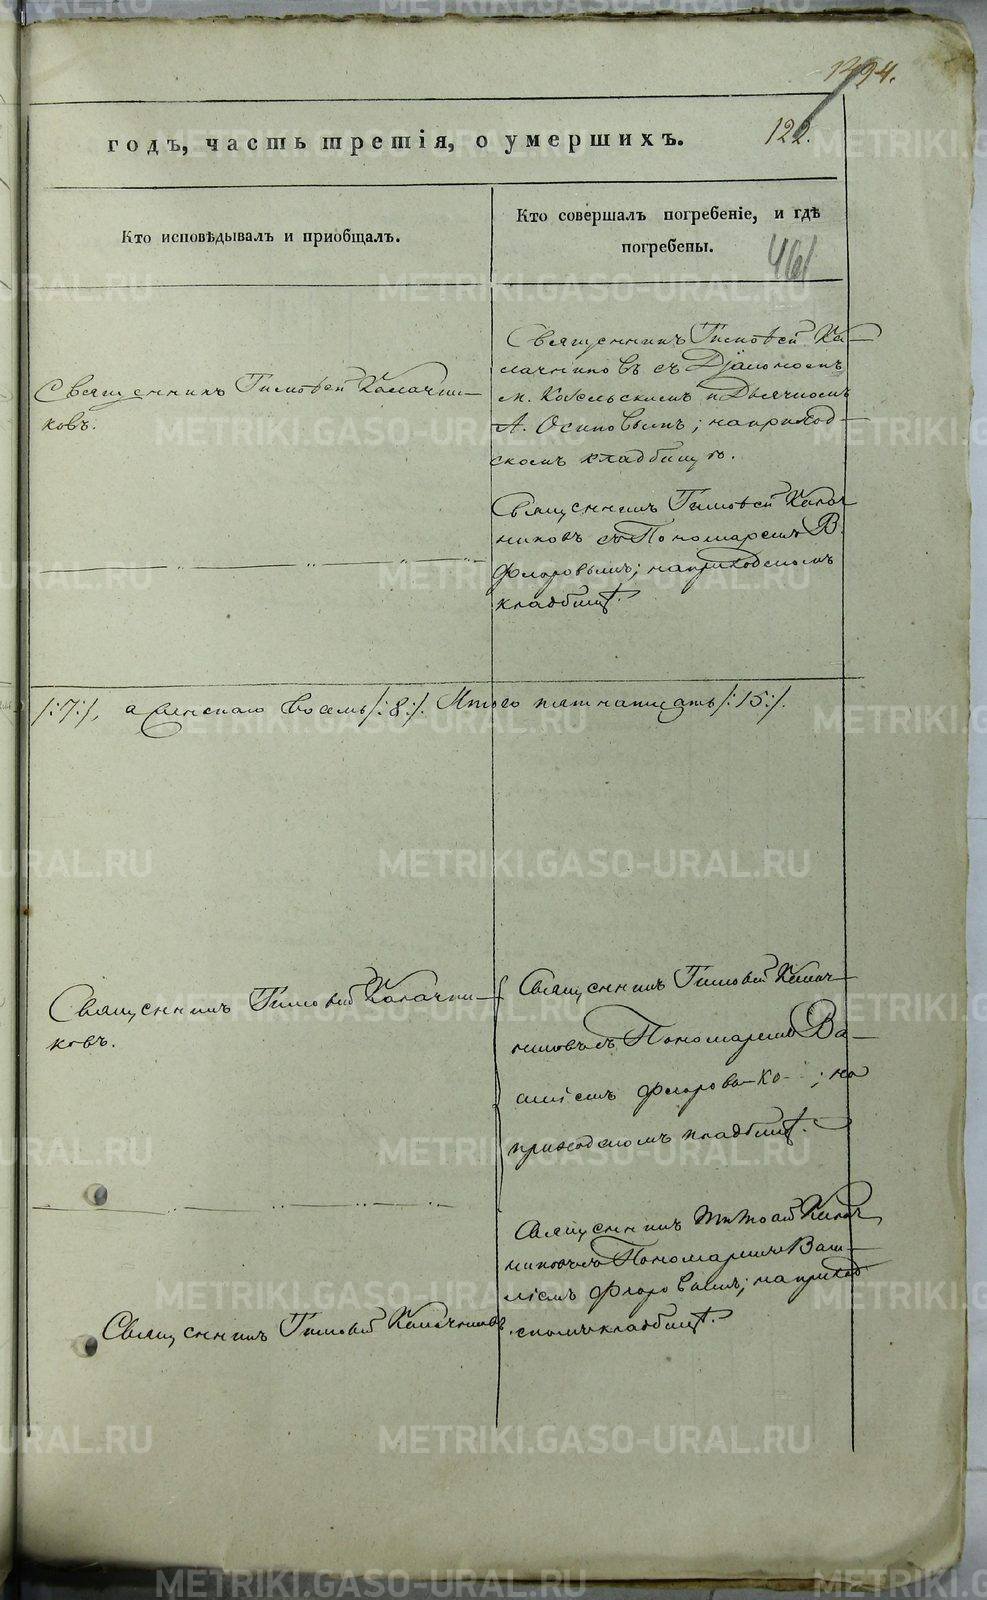 1494.
122.
годъ, часть третія, о умершихъ.
Кто исповѣдывалъ и пріобщалъ.
Кто совершалъ погребеніе, и гдѣ
погребены.
461
Священникъ Тимоѳей Калачни-
ковъ.
Священникъ Тимоѳей Ка-
лачниковъ съ Діакономъ
М. Кокельскимъ и Дьячкомъ
А. Осиповымъ; на приход-
скомъ кладбищѣ.
Священникъ Тимоѳей Калач
никовъ съ Пономаремъ В.
Флоровымъ; на приходскомъ
кладбищѣ.
/:7:/, а женскаго восемь /:8:/. Итого пятнатцать /:15:/.
Священникъ Тимоѳей Калачни-
ковъ.
Священникъ Тимоѳей Калач-
никовъ съ Пономаремъ Ва-
силіемъ Флоров ; на
приходскомъ кладбищѣ.
Священникъ Тимоѳей Калач
никовъ съ Пономаремъ Васи-
ліемъ Флоровымъ; на приход
скомъ кладбищѣ.
Священникъ Тимоѳей Калачниковъ.
METRIKI.GASO-URAL.RU